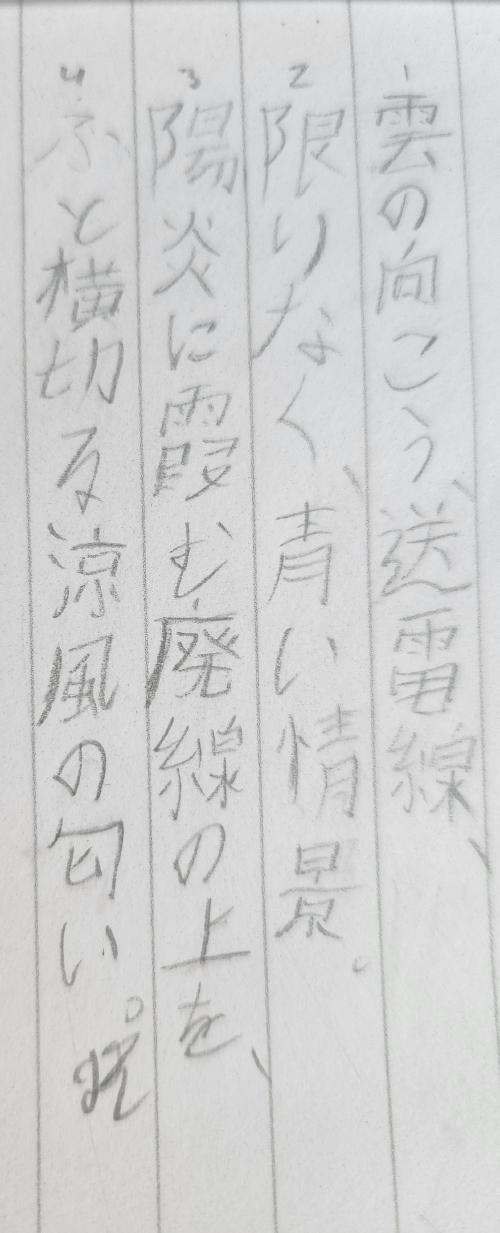 1 雲の向こう、送電線、
2 限りなく、青い情景。
3 陽炎に霞む廃線の上を、
4 ふと横切る涼風の匂い。